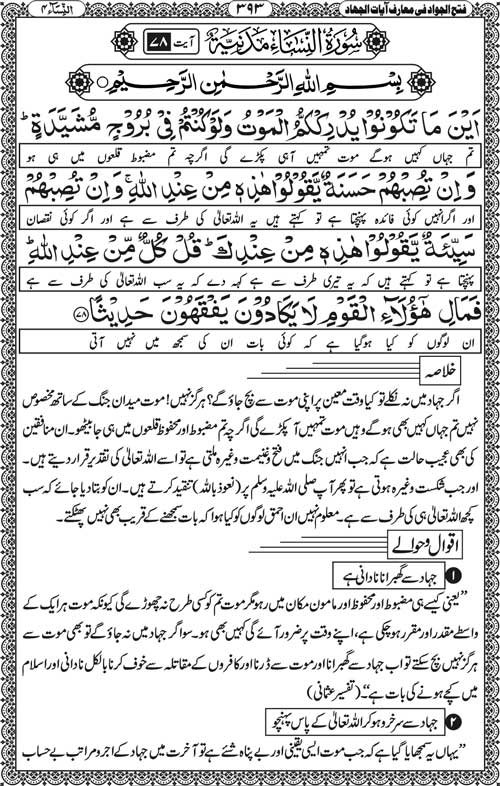 فتح الجواد فی معارف آیات الجہاد ۳۹۳ النسآء ۴
سُوْرَۃُ النِّسَاءِ مَدَنِیَّۃٌ آیت ۷۸
بِسْمِ اللہِ الرَّحْمٰنِ الرَّحِیْمِ
اَیْنَ مَا تَكُوْنُوْا یُدْرِكْكُّمُ الْمَوْتُ وَلَوْ كُنْتُمْ فِیْ بُرُوْجٍ مُّشَیَّدَةٍ ؕ
تم جہاں کہیں ہوگے موت تمہیں آہی پکڑے گی اگرچہ تم مضبوط قلعوں میں ہی ہو
وَاِنْ تُصِبْهُمْ حَسَنَةٌ یَّقُوْلُوْا هٰذِهٖ مِنْ عِنْدِ اللهِ ۚ وَاِنْ تُصِبْهُمْ
اور اگر انہیں کوئی فائدہ پہنچتا ہے تو کہتے ہیں یہ اللہ تعالیٰ کی طرف سے ہے اور اگر کوئی نقصان
سَیِّئَةٌ یَّقُوْلُوْا هٰذِهٖ مِنْ عِنْدِكَ ؕ قُلْ كُلٌّ مِّنْ عِنْدِ اللهِ ؕ
پہنچتا ہے تو کہتے ہیں کہ یہ تیری طرف سے ہے کہہ دے کہ یہ سب اللہ تعالیٰ کی طرف سے ہے
فَمَالِ هٰۤؤُلَآءِ الْقَوْمِ لَا یَكَادُوْنَ یَفْقَهُوْنَ حَدِیْثًا ﴿۷۸﴾
ان لوگوں کو کیا ہوگیا ہے کہ کوئی بات ان کی سمجھ میں نہیں آتی
خلاصہ
اگر جہاد میں نہ نکلے تو کیا وقت معین پر اپنی موت سے بچ جاؤ گے؟ ہرگز نہیں! موت میدان جنگ کے ساتھ مخصوص
نہیں تم جہاں کہیں بھی ہوگے وہیں موت تمہیں آ پکڑے گی اگرچہ تم مضبوط اور محفوظ قلعوں میں ہی جا بیٹھو۔ ان منافقین
کی بھی عجیب حالت ہے کہ جب انہیں جنگ میں فتح و غنیمت وغیرہ ملتی ہے تو اسے اللہ تعالیٰ کی تقدیر قرار دیتے ہیں۔
اور جب شکست وغیرہ ہوتی ہے تو پھر آپ صلی اللہ علیہ وسلم پر (نعوذ باللہ) تنقید کرتے ہیں۔ ان کو بتا دیا جائے کہ سب
کچھ اللہ تعالیٰ ہی کی طرف سے ہے۔ معلوم نہیں ان احمق لوگوں کو کیا ہوا کہ بات سمجھنے کے قریب بھی نہیں پھٹکتے۔
اقوال و حوالے
۱ جہاد سے گھبرانا نادانی ہے
”یعنی کیسے ہی مضبوط اور محفوظ اور مامون مکان میں رہو مگر موت تم کو کسی طرح نہ چھوڑے گی کیونکہ موت ہر ایک کے
واسطے مقدر اور مقرر ہو چکی ہے، اپنے وقت پر ضرور آئے گی کہیں بھی ہو۔ سو اگر جہاد میں نہ جاؤ گے تو بھی موت سے
ہرگز نہیں بچ سکتے تو اب جہاد سے گھبرانا اور موت سے ڈرنا اور کافروں کے مقاتلہ سے خوف کرنا بالکل نادانی اور اسلام
میں کچے ہونے کی بات ہے“ (تفسیر عثمانی)
۲ جہاد سے سرخرو ہو کر اللہ تعالیٰ کے پاس پہنچو
”یہاں یہ سمجھایا گیا ہے کہ جب موت ایسی یقینی اور بے پناہ شئے ہے تو آخرت میں جہاد کے اجر و مراتب بے حساب